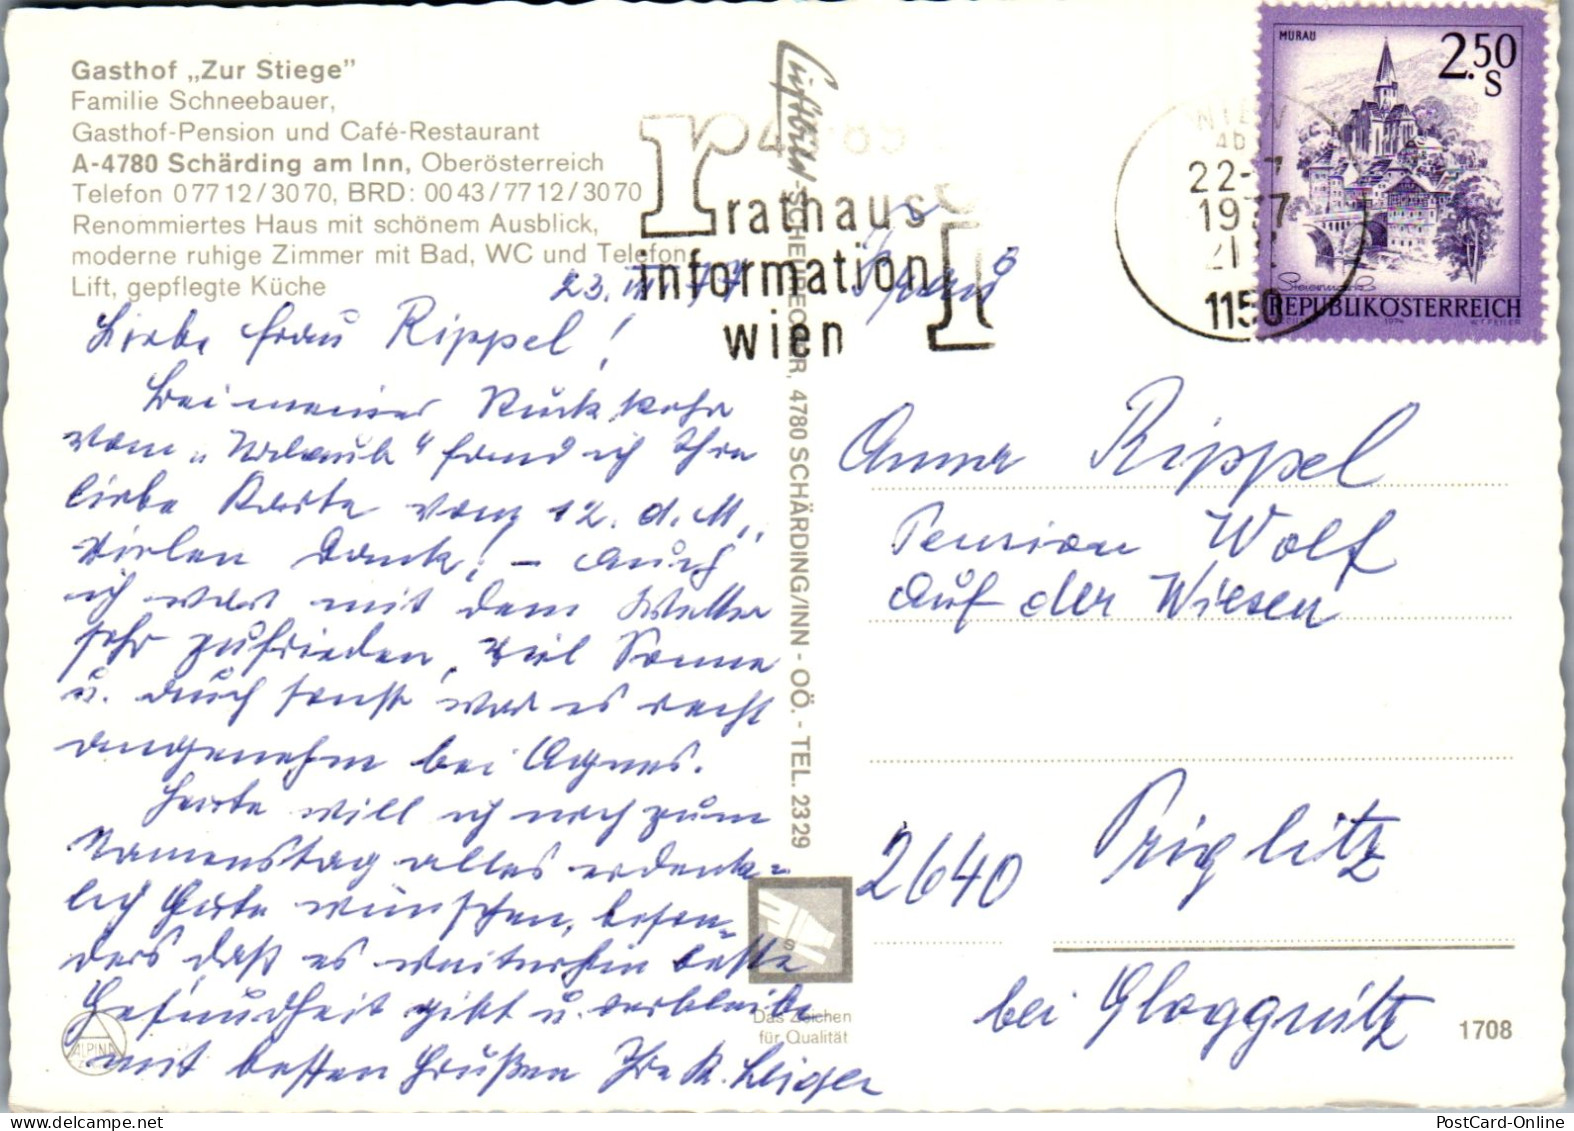 Gasthof „Zur Stiege”
Familie Schneebauer,
Gasthof-Pension und Café-Restaurant
A-4780 Schärding am Inn, Oberösterreich
Telefon 0 77 12 / 30 70, BRD: 00 43 / 77 12 / 30 70
Renommiertes Haus mit schönem Ausblick,
moderne ruhige Zimmer mit Bad, WC und Telefon,
Lift, gepflegte Küche
rathaus
information
wien
22-7
1977
1150
MURAU
2.50
S
REPUBLIK ÖSTERREICH
1974
Luftbild-SCHERDECOR, 4780 SCHÄRDING/INN - OÖ. - TEL. 23 29
23. 77
Liebe Frau Rippel!
Bei meiner Rückkehr
vom „Urlaub“ fand ich Ihre
liebe Karte vom 12. d. M.,
vielen Dank! – Auch
ich war mit dem Wetter
sehr zufrieden, viel Sonne
u. auch sonst war es recht
angenehm bei Agnes.
Heute will ich noch zum
Namenstag alles erdenk-
lich Gute wünschen, beson-
ders daß es weiterhin beste
Gesundheit gibt u. verbleibe
mit besten Grüßen Ihre
Anna Rippel
Pension Wolf
Auf der Wiesen
2640 Priglitz
bei Gloggnitz
ALPINA
S
Das Zeichen
für Qualität
1708
PostCard-Online